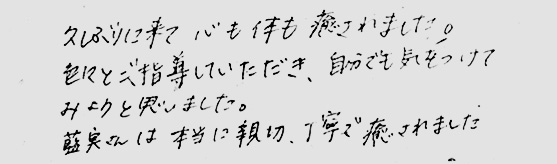 久しぶりに来て 心も体も癒されました。
色々とご指導していただき、自分でも気をつけて
みようと思いました。
藍実さんは本当に親切、丁寧で癒されました